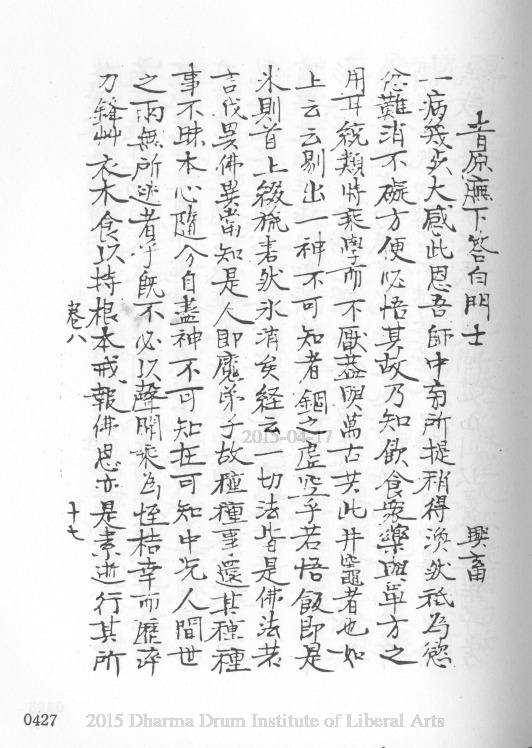 青原廡下答白門士 興畜
一病幾失大感此恩吾師中旁所提稍得渙然秪為慾
忿難消不礙方便必悟其故乃知飲食衆藥與單方之
用耳銳類時乘學而不厭葢與萬古共此井竈者也如
上云云剔出一神不可知者錮之虛空乎若悟飯即是
米則首上綴旒者然氷消矣経云一切法皆是佛法若
言伐異佛異當知是人即魔弟子故種種事還其種種
事不昧本心隨分自盡神不可知在可知中況人間世
之兩無所逃者乎旣不必以聲聞乘為桎梏幸而歷淬
刀鋒艸衣木食以持根本戒報佛恩亦是素逝行其所
卷八 十七
2015-04-17
0427 2015 Dharma Drum Institute of Liberal Arts